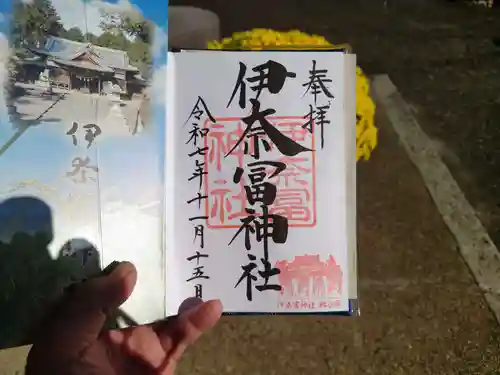 奉拝
伊奈冨神社
令和七年十一月十五日
伊奈冨
神社
伊奈冨神社
伊奈